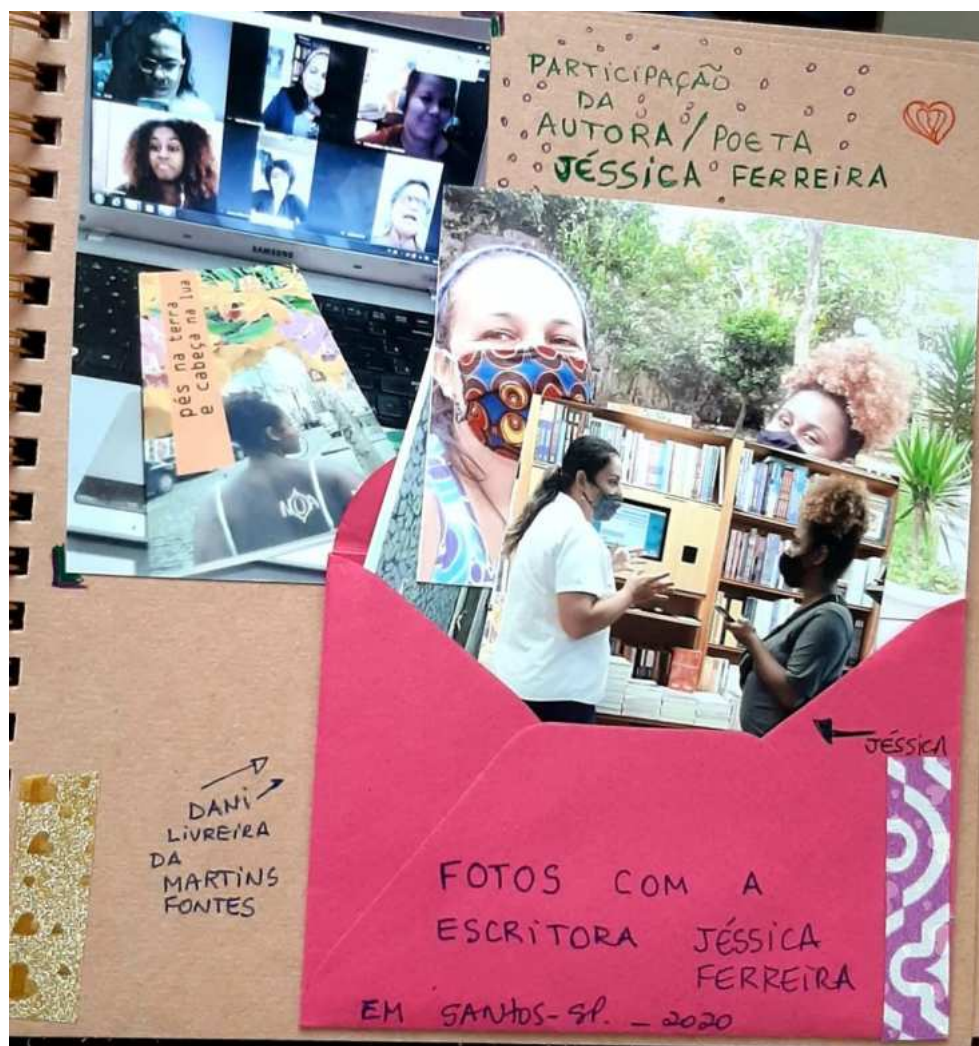 PARTICIPAÇÃO
DA
AUTORA/POETA
JÉSSICA FERREIRA
SAMSUNG
pés na terra
e cabeça na lua
JÉSSICA
DANI
LIVREIRA
DA
MARTINS
FONTES
FOTOS COM A
ESCRITORA JÉSSICA
FERREIRA
EM SANTOS-SP. - 2020